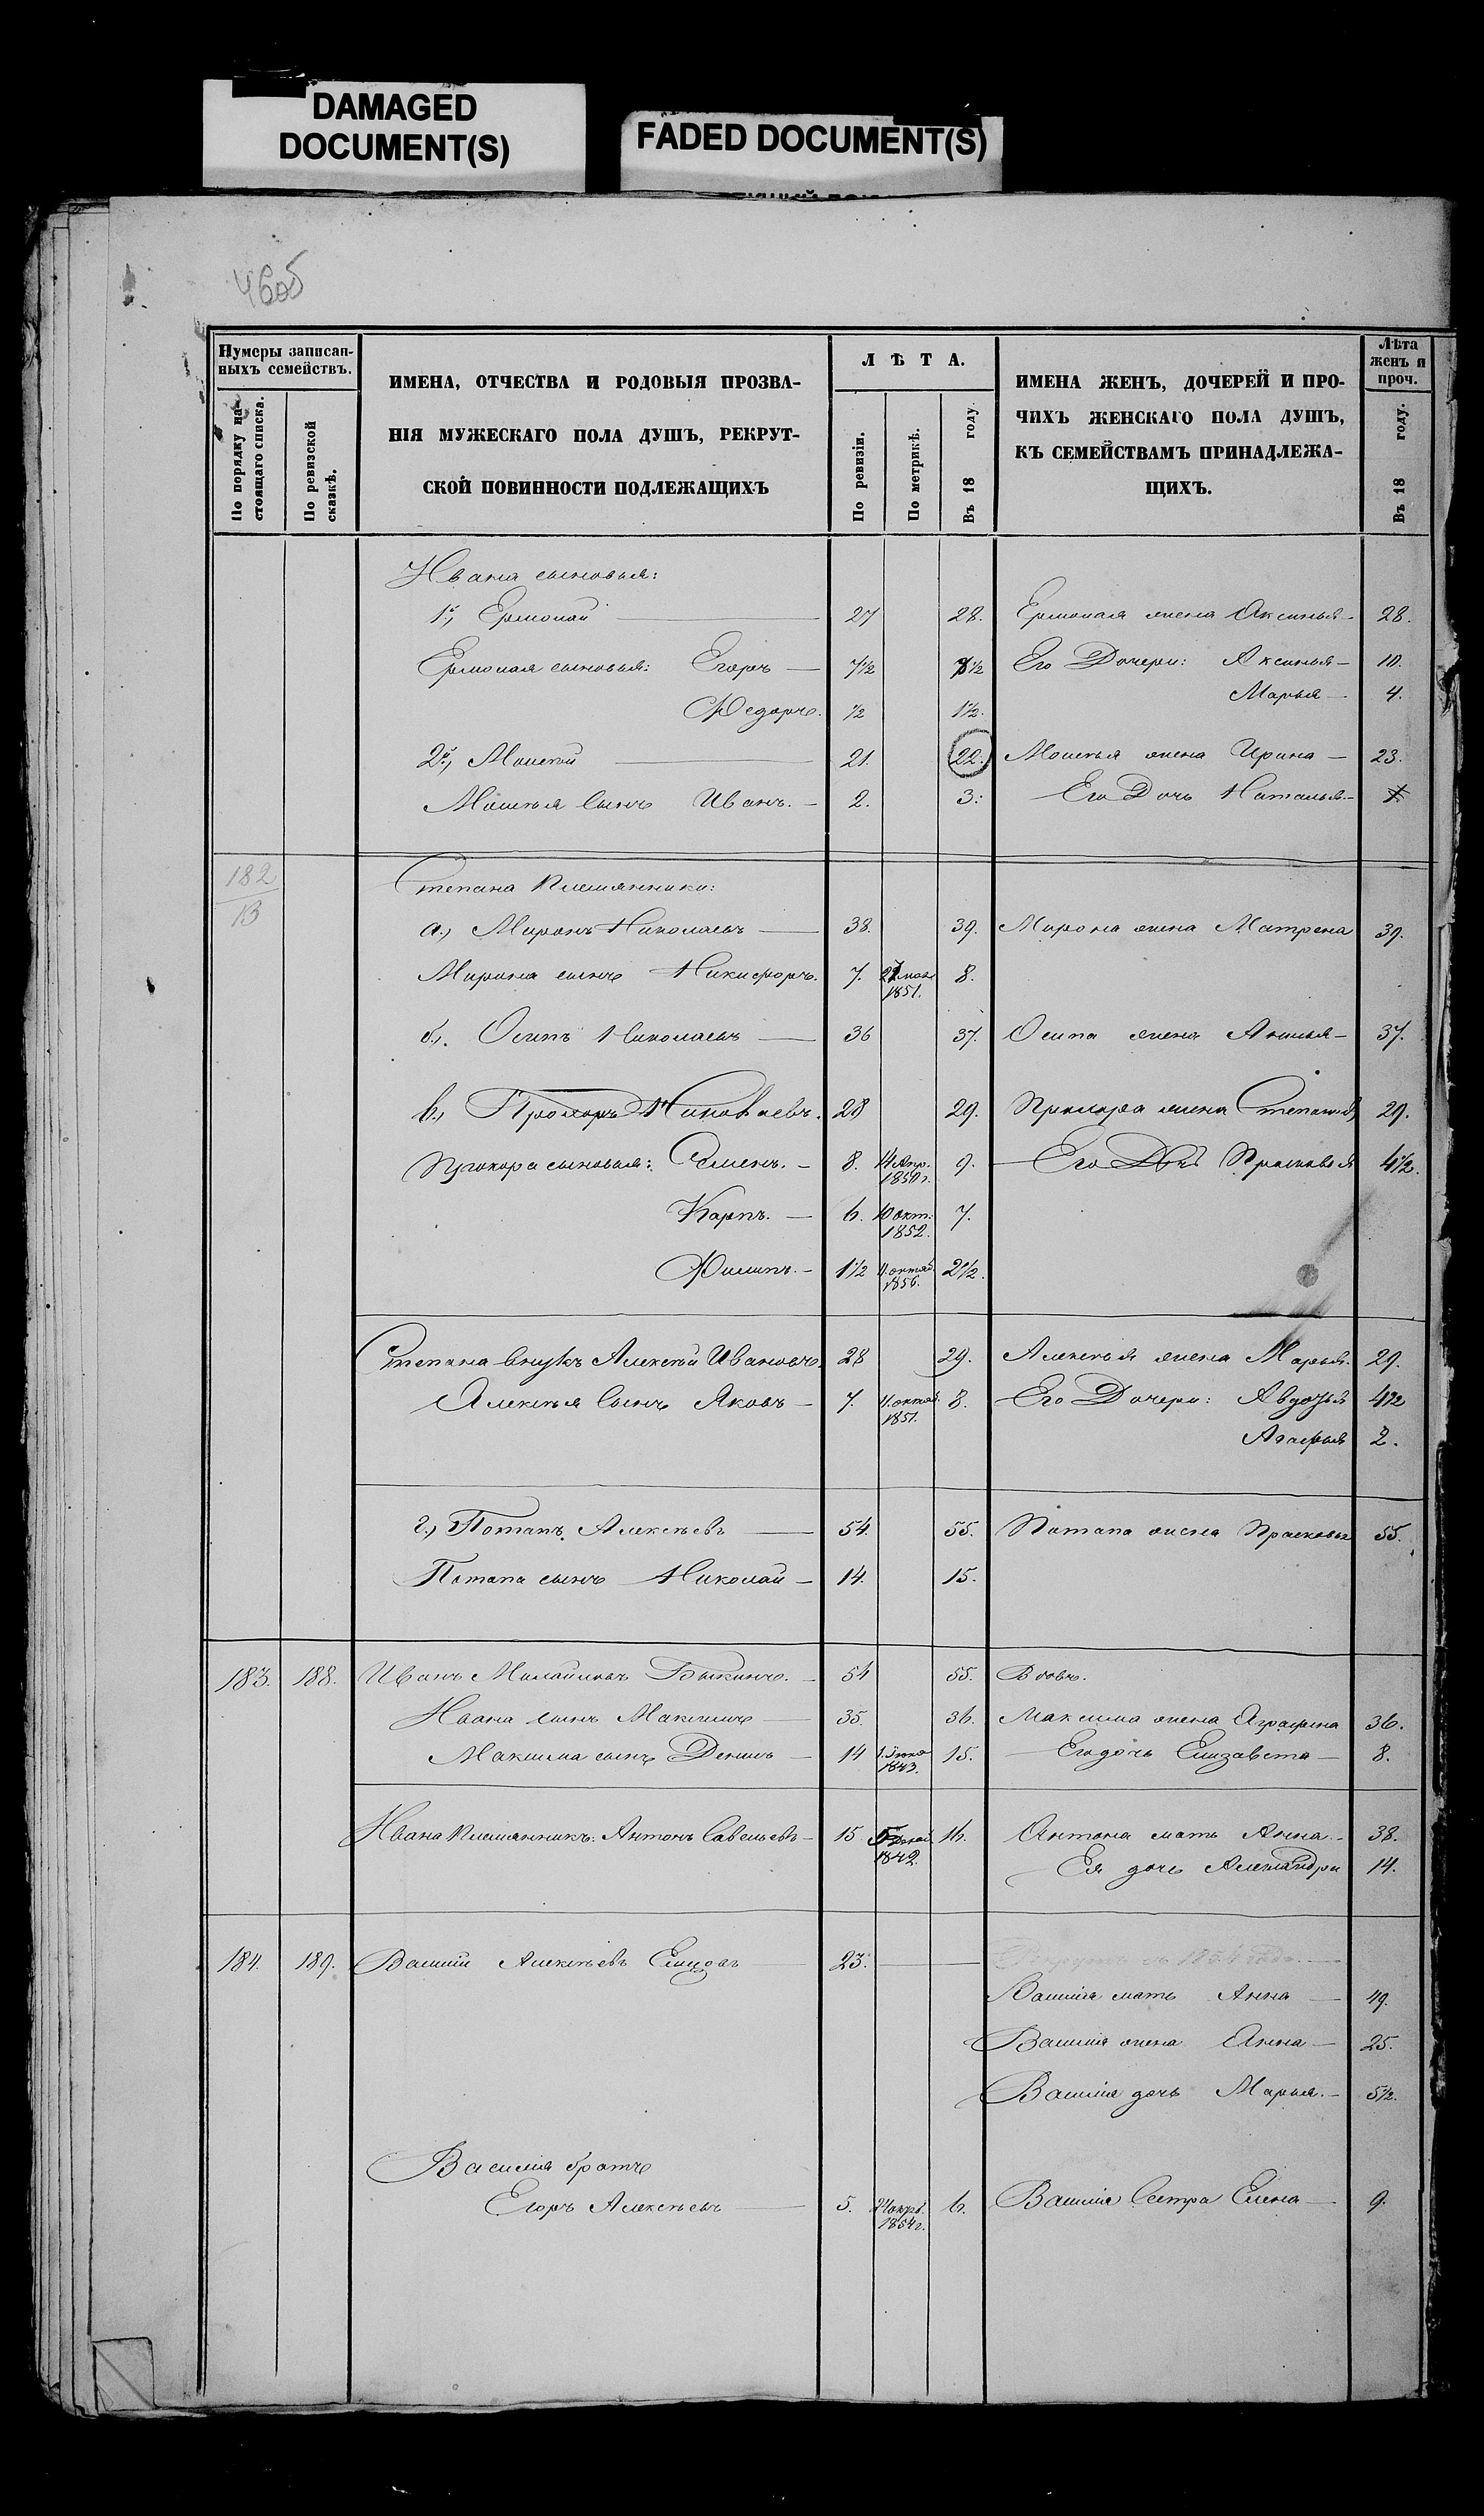 DAMAGED
DOCUMENT(S)
FADED DOCUMENT(S)
Нумеры записан-
ныхъ семействъ.
По порядку на-
стоящаго списка.
По ревизской
сказкѣ.
ИМЕНА, ОТЧЕСТВА И РОДОВЫЯ ПРОЗВА-
НІЯ МУЖЕСКАГО ПОЛА ДУШЪ, РЕКРУТ-
СКОЙ ПОВИННОСТИ ПОДЛЕЖАЩИХЪ
ЛѢТА.
По ревизіи.
По метрикѣ.
Въ 18 году.
ИМЕНА ЖЕНЪ, ДОЧЕРЕЙ И ПРО-
ЧИХЪ ЖЕНСКАГО ПОЛА ДУШЪ,
КЪ СЕМЕЙСТВАМЪ ПРИНАДЛЕЖА-
ЩИХЪ.
Лѣта
женъ и
проч.
Въ 18 году.
Ивана сыновья:
1й, Ермолай — 27 28. Ермолая жена Аксинья — 28.
Ермолая сыновья: Егоръ — 7½ 8½ Его Дочери: Аксинья — 10.
Федоръ. ½ 1½. Марья — 4.
2й, Моисей — 21. 22. Моисея жена Ирина — 23.
Моисея Сынъ Иванъ. — 2. 3: Его Дочь Наталья —
182
13
Степана племянники:
а., Миронъ Николаевъ — 38. 39. Мирона жена Матрена 39.
Мирона сынъ Никифоръ. 7. 1851. 8.
б., Осипъ Николаевъ — 36 37. Осипа жена Анисья — 37.
в., Прохоръ Николаевъ. 28 29. Прохора жена Степанида 29.
Прохора сыновья: Семенъ. — 8. 14 Апр. 1850 г. 9. Его Дочь Прасковья 4½.
Карпъ. — 6. 10 окт. 1852. 7.
Филипъ. — 1½ 4. октяб. 1856. 2½.
Степана внукъ Алексѣй Ивановъ. 28 29. Алексѣя жена Марья. 29.
Алексѣя Сынъ Яковъ — 7. 4. октяб. 1851. 8. Его Дочери: Авдотья 4½
Агафья 2.
г., Потапъ Алексѣевъ — 54. 55. Потапа жена Прасковья 55.
Потапа сынъ Николай — 14. 15.
183. 188. Иванъ Михайловъ Быкинъ. — 54 55. Вдовъ.
Ивана сынъ Максимъ — 35. 36. Максима жена Аграфена 36.
Максима сынъ Денисъ — 14 1843. 15. Его дочь Елизавета — 8.
Ивана племянникъ: Антонъ Савельевъ — 15 1842. 16. Антона мать Анна. — 38.
Ея дочь Александра 14.
184. 189. Василій Алексѣевъ Елцовъ 23.
Василія мать Анна — 49.
Василія жена Анна — 25.
Василія дочь Марья. — 5½.
Василія братъ
Егоръ Алексѣевъ — 5. 1854 г. 6. Василія Сестра Елена — 9.